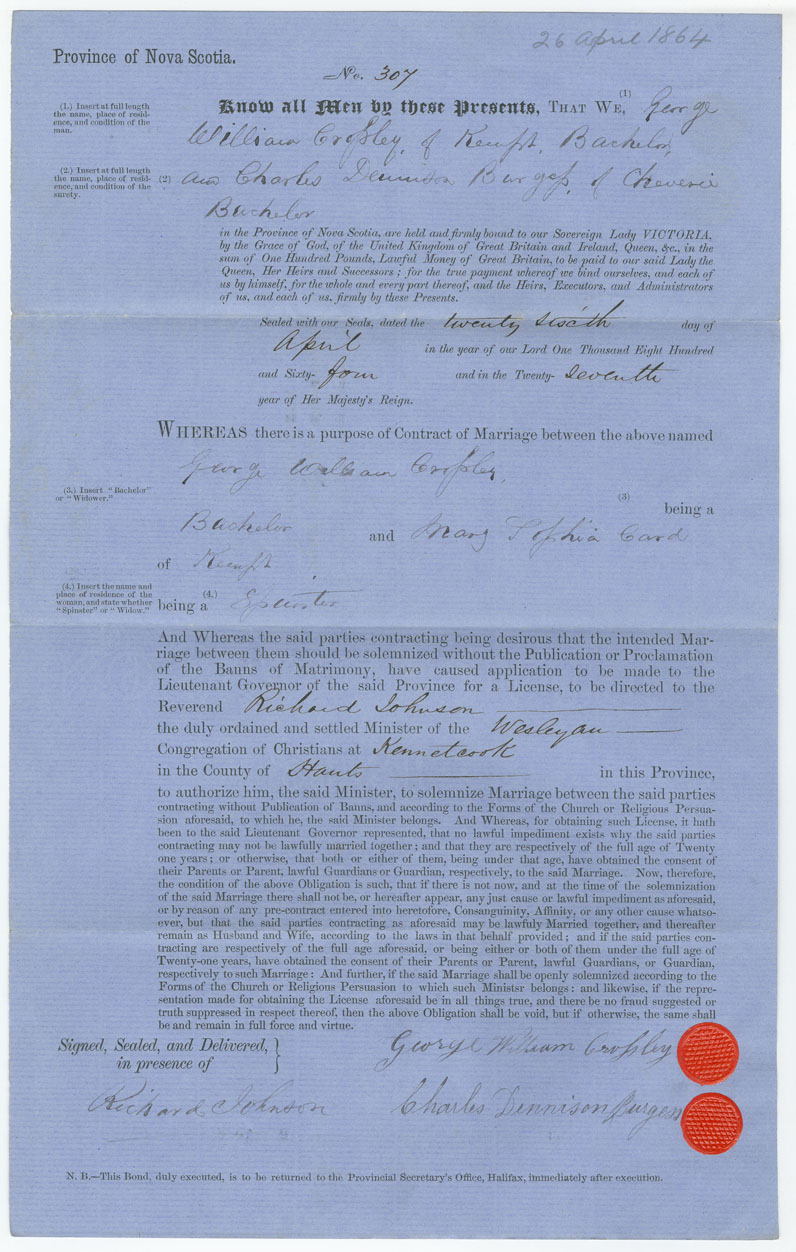 26 April 1864
Province of Nova Scotia.
No. 307
(1.) Insert at full length
the name, place of resid-
ence, and condition of the
man.
Know all Men by these Presents, THAT WE, (1) George
William Croſsley, of Kempt, Bachelor,
(2.) Insert at full length
the name, place of resid-
ence, and condition of the
surety.
(2) and Charles Dennison Burgeſs, of Cheverie
Bachelor
in the Province of Nova Scotia, are held and firmly bound to our Sovereign Lady VICTORIA,
by the Grace of God, of the United Kingdom of Great Britain and Ireland, Queen, &c., in the
sum of One Hundred Pounds, Lawful Money of Great Britain, to be paid to our said Lady the
Queen, Her Heirs and Successors; for the true payment whereof we bind ourselves, and each of
us by himself, for the whole and every part thereof, and the Heirs, Executors, and Administrators
of us, and each of us, firmly by these Presents.
Sealed with our Seals, dated the twenty sixth day of
April in the year of our Lord One Thousand Eight Hundred
and Sixty- four and in the Twenty- Seventh
year of Her Majesty's Reign.
WHEREAS there is a purpose of Contract of Marriage between the above named
George William Croſsley
(3.) Insert "Bachelor"
or "Widower."
(3) being a
Bachelor and Mary Sophia Card
of Kempt
(4.) Insert the name and
place of residence of the
woman, and state whether
"Spinster" or "Widow."
being a (4.) Spinster
And Whereas the said parties contracting being desirous that the intended Mar-
riage between them should be solemnized without the Publication or Proclamation
of the Banns of Matrimony, have caused application to be made to the
Lieutenant Governor of the said Province for a License, to be directed to the
Reverend Richard Johnson
the duly ordained and settled Minister of the Wesleyan
Congregation of Christians at Kennetcook
in the County of Hants in this Province,
to authorize him, the said Minister, to solemnize Marriage between the said parties
contracting without Publication of Banns, and according to the Forms of the Church or Religious Persua-
sion aforesaid, to which he, the said Minister belongs. And Whereas, for obtaining such License, it hath
been to the said Lieutenant Governor represented, that no lawful impediment exists why the said parties
contracting may not be lawfully married together; and that they are respectively of the full age of Twenty
one years; or otherwise, that both or either of them, being under that age, have obtained the consent of
their Parents or Parent, lawful Guardians or Guardian, respectively, to the said Marriage. Now, therefore,
the condition of the above Obligation is such, that if there is not now, and at the time of the solemnization
of the said Marriage there shall not be, or hereafter appear, any just cause or lawful impediment as aforesaid,
or by reason of any pre-contract entered into heretofore, Consanguinity, Affinity, or any other cause whatso-
ever, but that the said parties contracting as aforesaid may be lawfuly Married together, and thereafter
remain as Husband and Wife, according to the laws in that behalf provided; and if the said parties con-
tracting are respectively of the full age aforesaid, or being either or both of them under the full age of
Twenty-one years, have obtained the consent of their Parents or Parent, lawful Guardians, or Guardian,
respectively to such Marriage: And further, if the said Marriage shall be openly solemnized according to the
Forms of the Church or Religious Persuasion to which such Ministsr belongs: and likewise, if the repre-
sentation made for obtaining the License aforesaid be in all things true, and there be no fraud suggested or
truth suppressed in respect thereof, then the above Obligation shall be void, but if otherwise, the same shall
be and remain in full force and virtue.
Signed, Sealed, and Delivered,
in presence of
George William Croſsley
Richard Johnson
Charles Dennison Burgess
N. B.—This Bond, duly executed, is to be returned to the Provincial Secretary's Office, Halifax, immediately after execution.